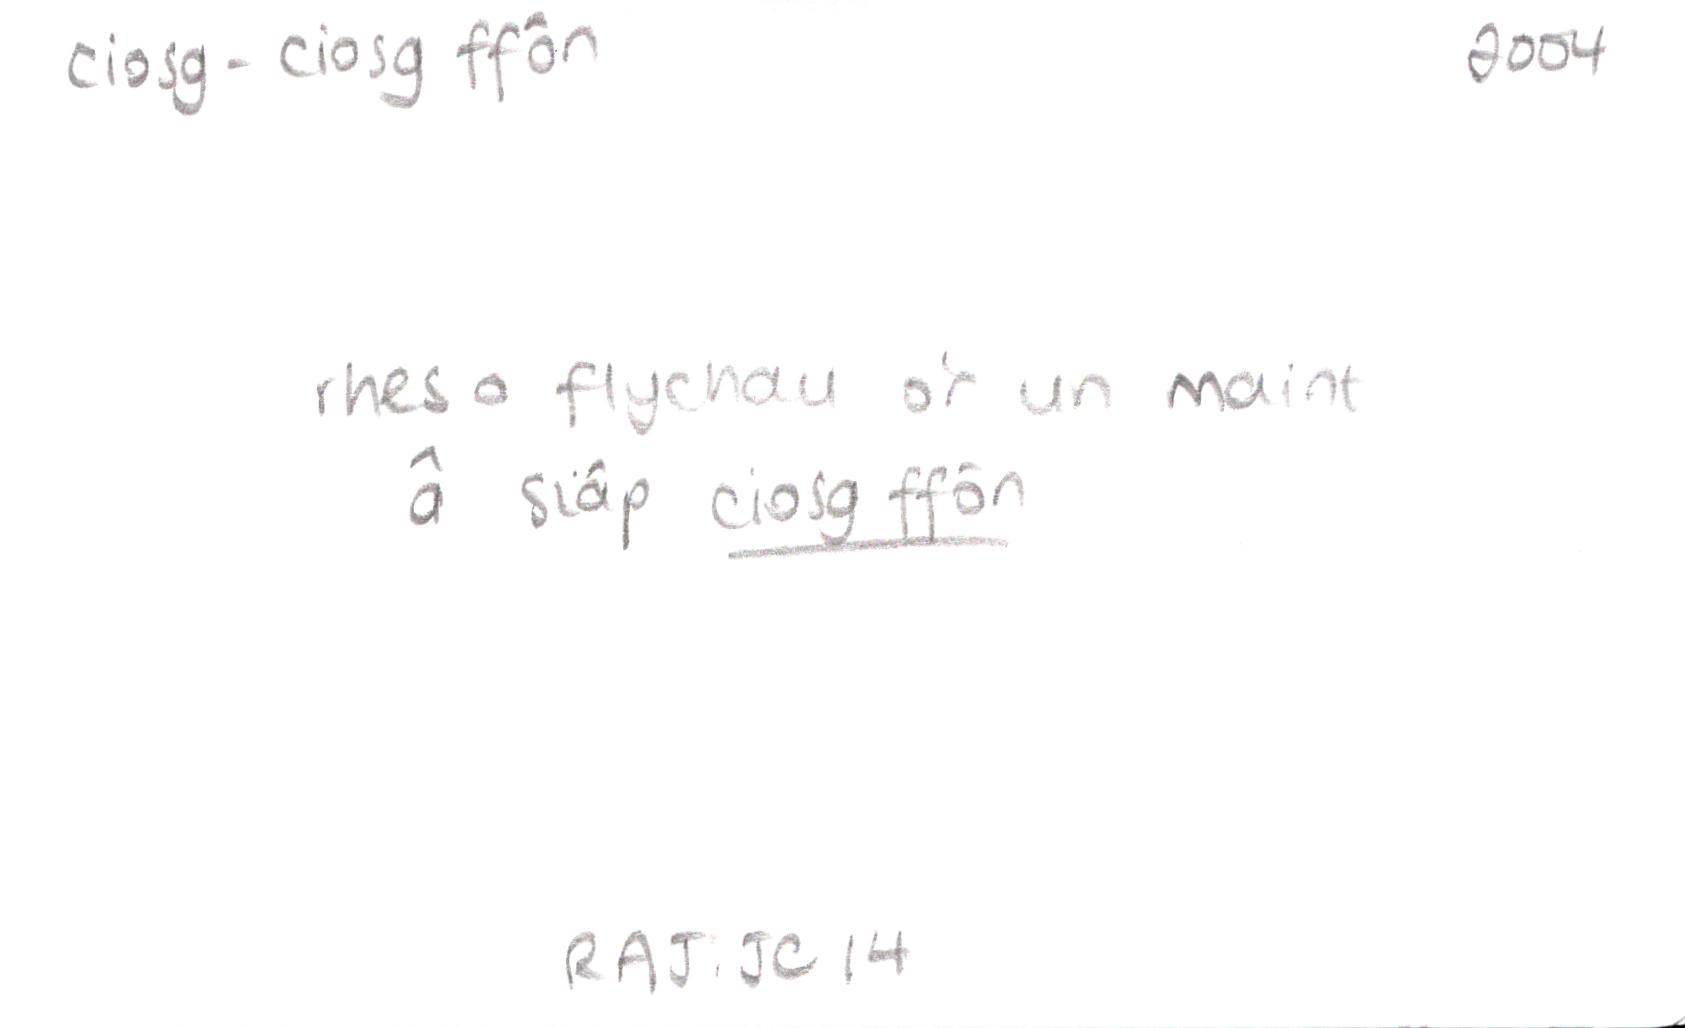 ciosg - ciosg ffôn 2004
rhes o flychau o'r un maint
â siâp ciosg ffôn
RAJ: JC 14